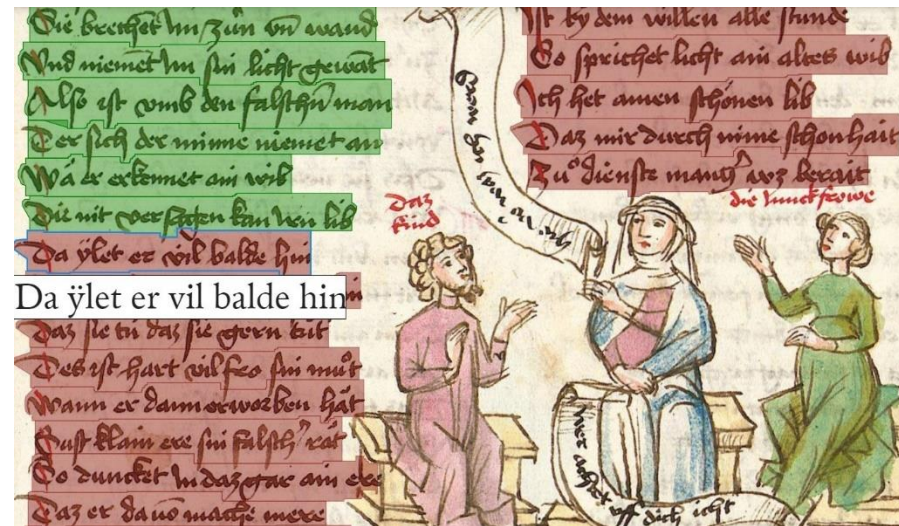 Sie brechet Im zún vn̄ wand
Vnd niemet Im sin licht gewāt
Also ist vmb den falschn̄ man
Der sich der minne niemet an
Wa er erkennet ain wib
Die nit versagen kan iren lib
Da ÿlet er vil balde hin
Da ÿlet er vil balde hin
Daz sie tú daz sie gern tút
Des ist hart vil fro sin můt
Wann er dann erworben hăt
Sust klain ere sin falsch răt
So duncket In daz gar ain ere
Daz er da vō mache mere
Ist by dem willen alle stunde
So sprichet licht ain altes wib
Ich het ainen schönen lib
Daz mir durch mine schonhait
Zů dienste manch waz berait
daz
kind
die Iunckfrowe
vff dich icht